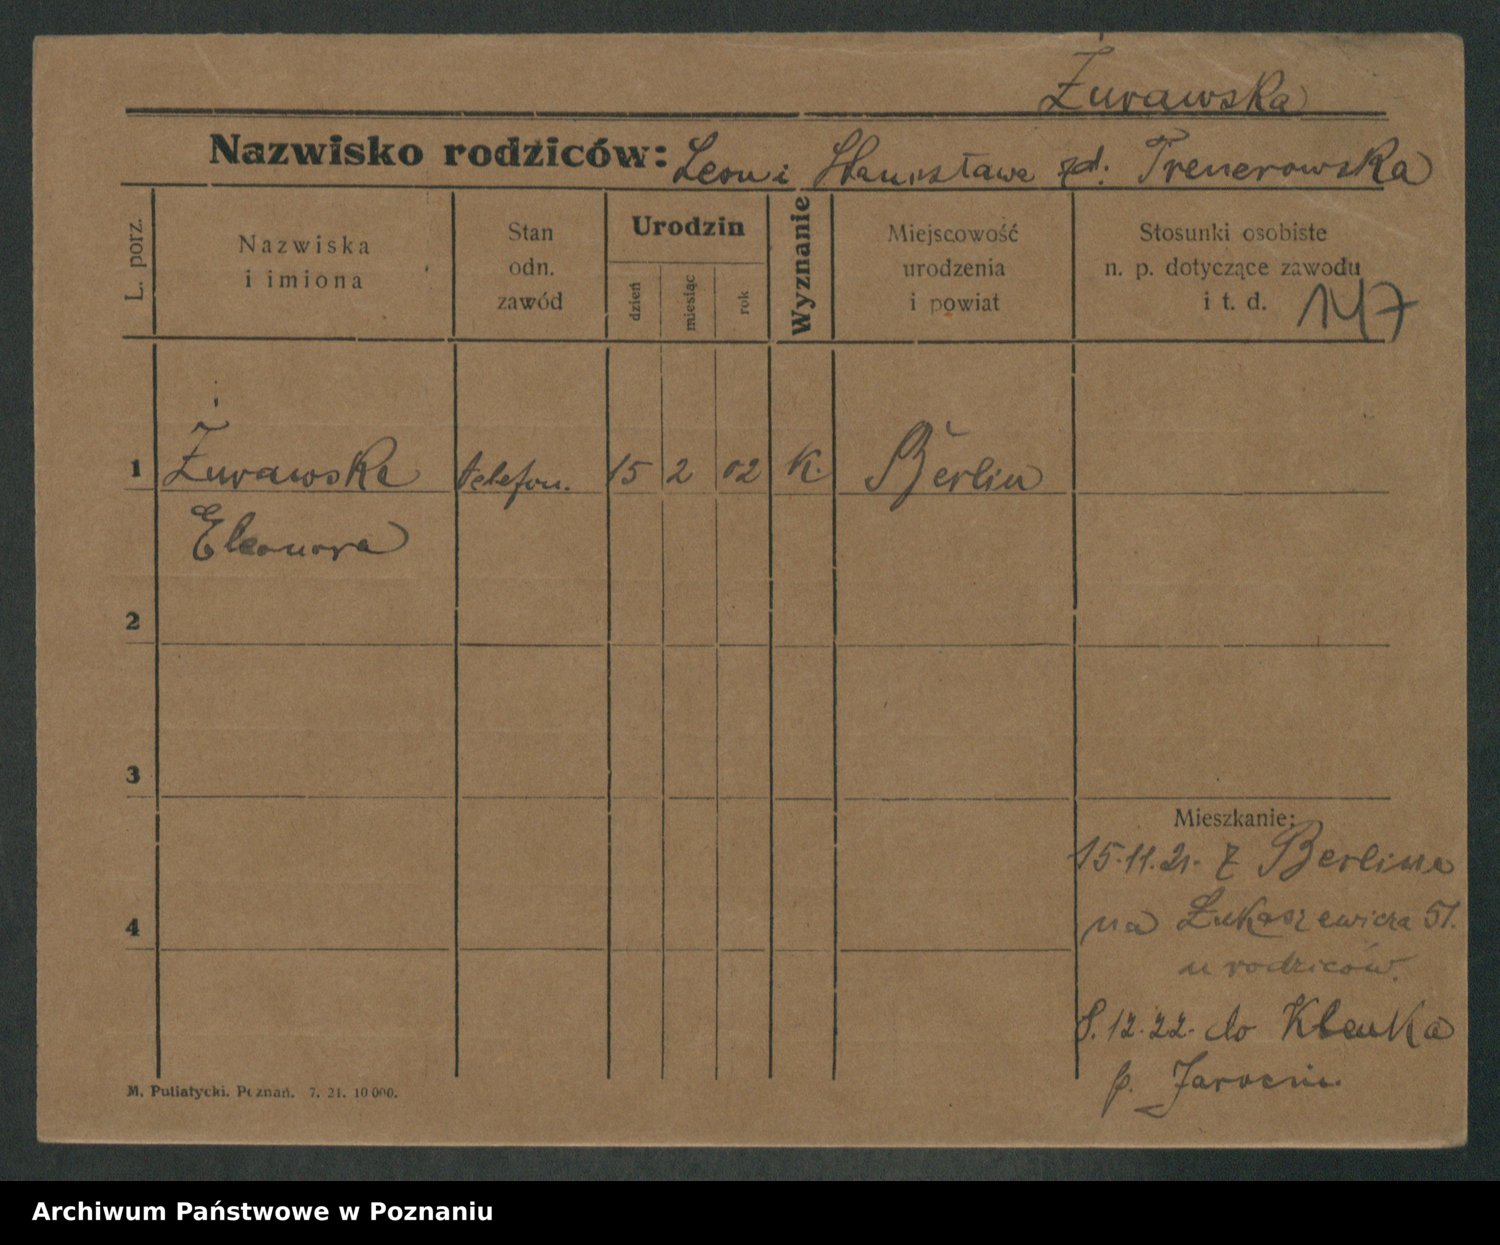 Żurawska
Nazwisko rodziców: Leon i Stanisława zd. Trenerowska
L. porz.
Nazwiska
i imiona
Stan
odn.
zawód
Urodzin
dzień
miesiąc
rok
Wyznanie
Miejscowość
urodzenia
i powiat
Stosunki osobiste
n. p. dotyczące zawodu
i t. d.
147
1 Żurawska telefon. 15 2 02 K. Berlin
Eleonora
2
3
Mieszkanie:
15.11.21. z Berlina
4
na Łukaszewicza 51.
u rodziców.
8.12.22. do Klenka
p. Jarocin.
M. Putiatycki. Poznań. 7. 21. 10 000.
Archiwum Państwowe w Poznaniu